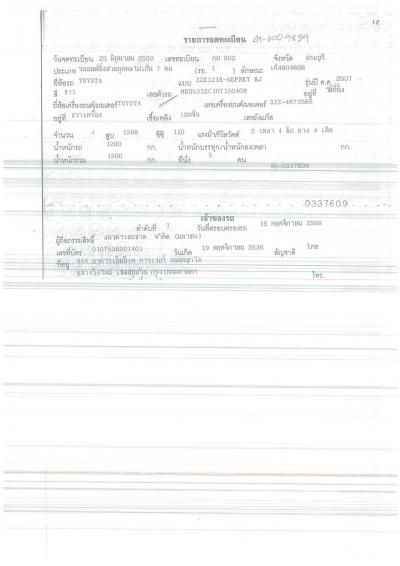 12
รายการจดทะเบียน
วันจดทะเบียน 20 มิถุนายน 2550 เลขทะเบียน กม 602 จังหวัด สระบุรี
ประเภท รถยนต์นั่งส่วนบุคคลไม่เกิน 7 คน (รย. 1 ) ลักษณะ เก๋งสองตอน
ยี่ห้อรถ TOYOTA แบบ ZZE121R-GEPNKT BJ รุ่นปี ค.ศ. 2007
สี ขาว เลขตัวรถ MR053ZEC107150408 อยู่ที่
ยี่ห้อเครื่องยนต์/มอเตอร์ TOYOTA เลขเครื่องยนต์/มอเตอร์ 3ZZ-4672565
อยู่ที่ ขวาเครื่อง เชื้อเพลิง เบนซิน เลขถังแก๊ส
จำนวน 4 สูบ 1598 ซีซี 110 แรงม้า/กิโลวัตต์ 2 เพลา 4 ล้อ ยาง 4 เส้น
น้ำหนักรถ 1200 กก. น้ำหนักบรรทุก/น้ำหนักลงเพลา กก.
น้ำหนักรวม 1200 กก. ที่นั่ง 5 คน 50-0337609
0337609
เจ้าของรถ
ลำดับที่ 1 วันที่ครอบครองรถ 15 พฤศจิกายน
ผู้ถือกรรมสิทธิ์ ธนาคารธนชาต จำกัด (มหาชน)
เลขที่บัตร 0107536001401 วันเกิด 19 พฤศจิกายน 2536 สัญชาติ ไทย
ที่อยู่ 444 อาคารเอ็มบีเค ทาวเวอร์ ถนนพญาไท
แขวงวังใหม่ เขตปทุมวัน กรุงเทพมหานคร โทร.